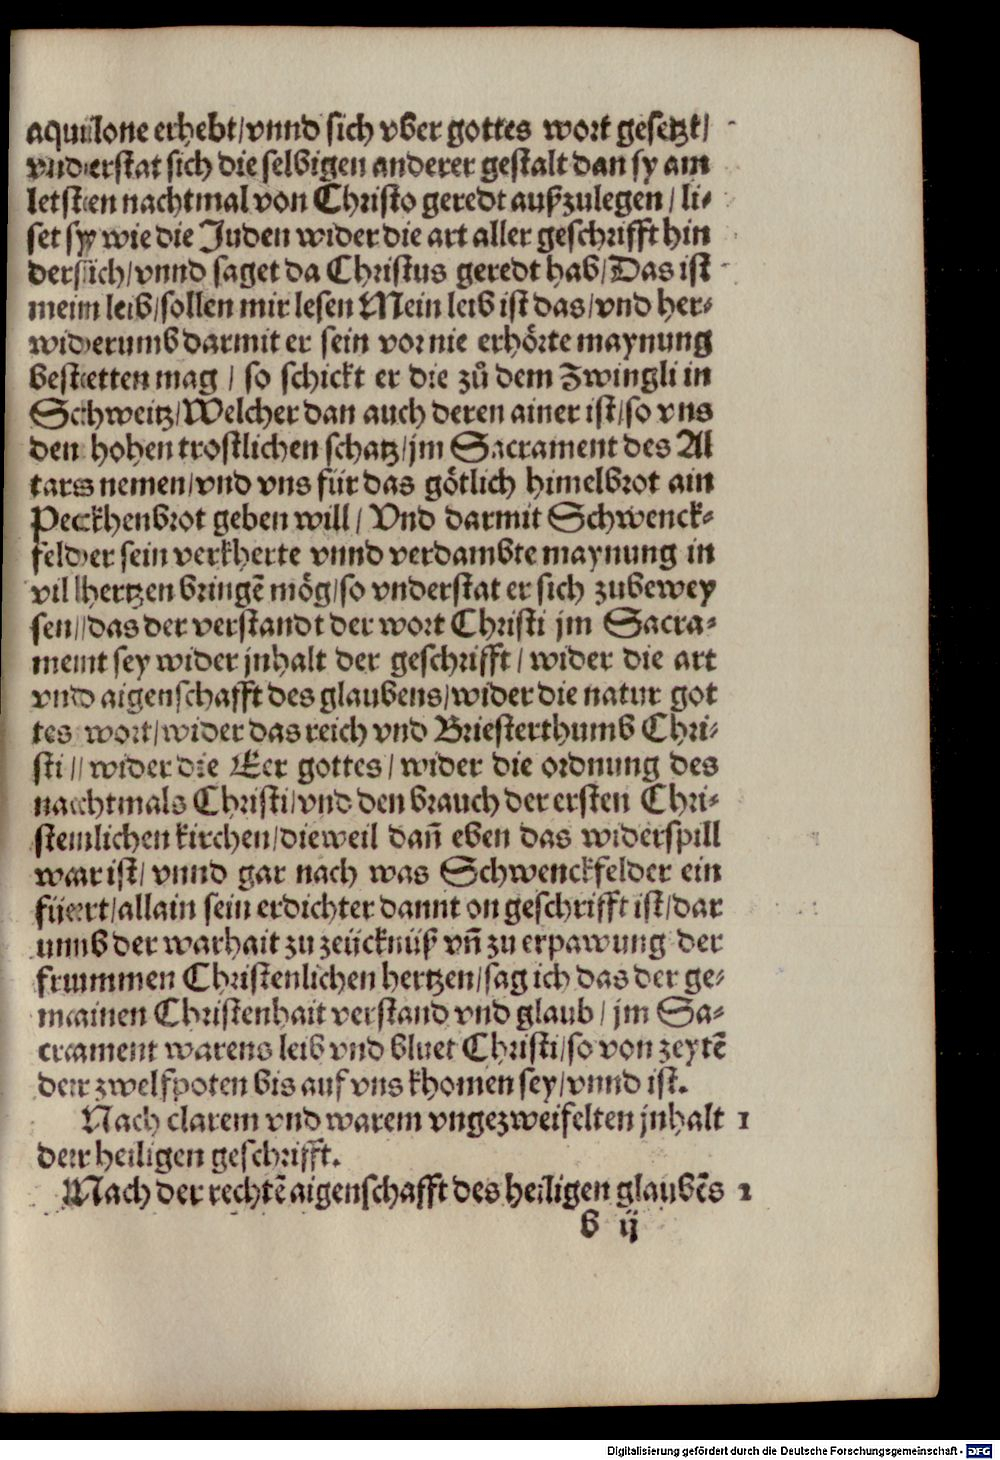 aquilone erhebt/vnnd sich vber gottes wort gesetzt/
vnderstat sich die selbigen anderer gestalt dan sy am
letsten nachtmal von Christo geredt außzulegen/li-
set sy wie die Juden wider die art aller geschrifft hin
dersich/vnnd saget da Christus geredt hab/Das ist
mein leib/sollen mir lesen Mein leib ist das/vnd her-
widerumb darmit er sein vor nie erhörte maynung
bestetten mag/ so schickt er die zů dem Zwingli in
Schweitz/Welcher dan auch deren ainer ist/so vns
den hohen trostlichen schatz/jm Sacrament des Al
tars nemen/vnd vns für das götlich himelbrot ain
Peckhenbrot geben will/ Vnd darmit Schwenck-
felder sein verkherte vnnd verdambte maynung in
vil hertzen bringē mög/so vnderstat er sich zubewey
sen/das der verstandt der wort Christi jm Sacra-
ment sey wider jnhalt der geschrifft/ wider die art
vnd aigenschafft des glaubens/wider die natur got
tes wort/wider das reich vnd Briesterthumb Chri-
sti/ wider die Eer gottes/ wider die ordnung des
nachtmals Christi/vnd den brauch der ersten Chri-
stenlichen kirchen/dieweil dañ eben das widerspill
war ist/ vnnd gar nach was Schwenckfelder ein
füert/allain sein erdichter dannt on geschrifft ist/dar
umb der warhait zu zeücknüß vñ zu erpawung der
frummen Christenlichen hertzen/sag ich das der ge-
mainen Christenhait verstand vnd glaub/ jm Sa-
crament warens leib vnd bluet Christi/so von zeytē
der zwelfpoten bis auf vns khomen sey/vnnd ist.
Nach clarem vnd warem vngezweifelten jnhalt 1
der heiligen geschrifft.
Nach der rechtē aigenschafft des heiligen glaubēs 2
b ij
Digitalisierung gefördert durch die Deutsche Forschungsgemeinschaft - DFG